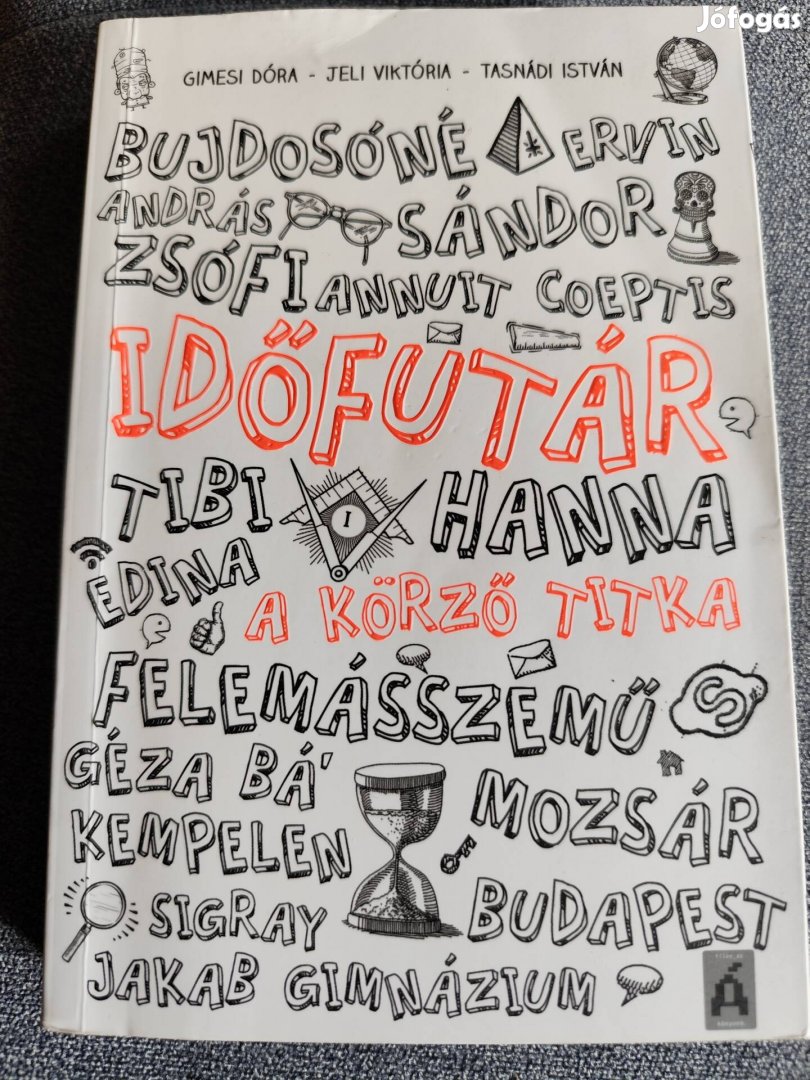 Jófogás
GIMESI DÓRA - JELI VIKTÓRIA - TASNÁDI ISTVÁN
BUJDOSÓNÉ ERVIN
ANDRÁS SÁNDOR
ZSÓFI ANNUIT COEPTIS
IDŐFUTÁR
TIBI I HANNA
EDINA
A KÖRZŐ TITKA
FELEMÁSSZEMŰ S
GÉZA BÁ'
MOZSÁR
KEMPELEN
SIGRAY BUDAPEST
JAKAB GIMNÁZIUM